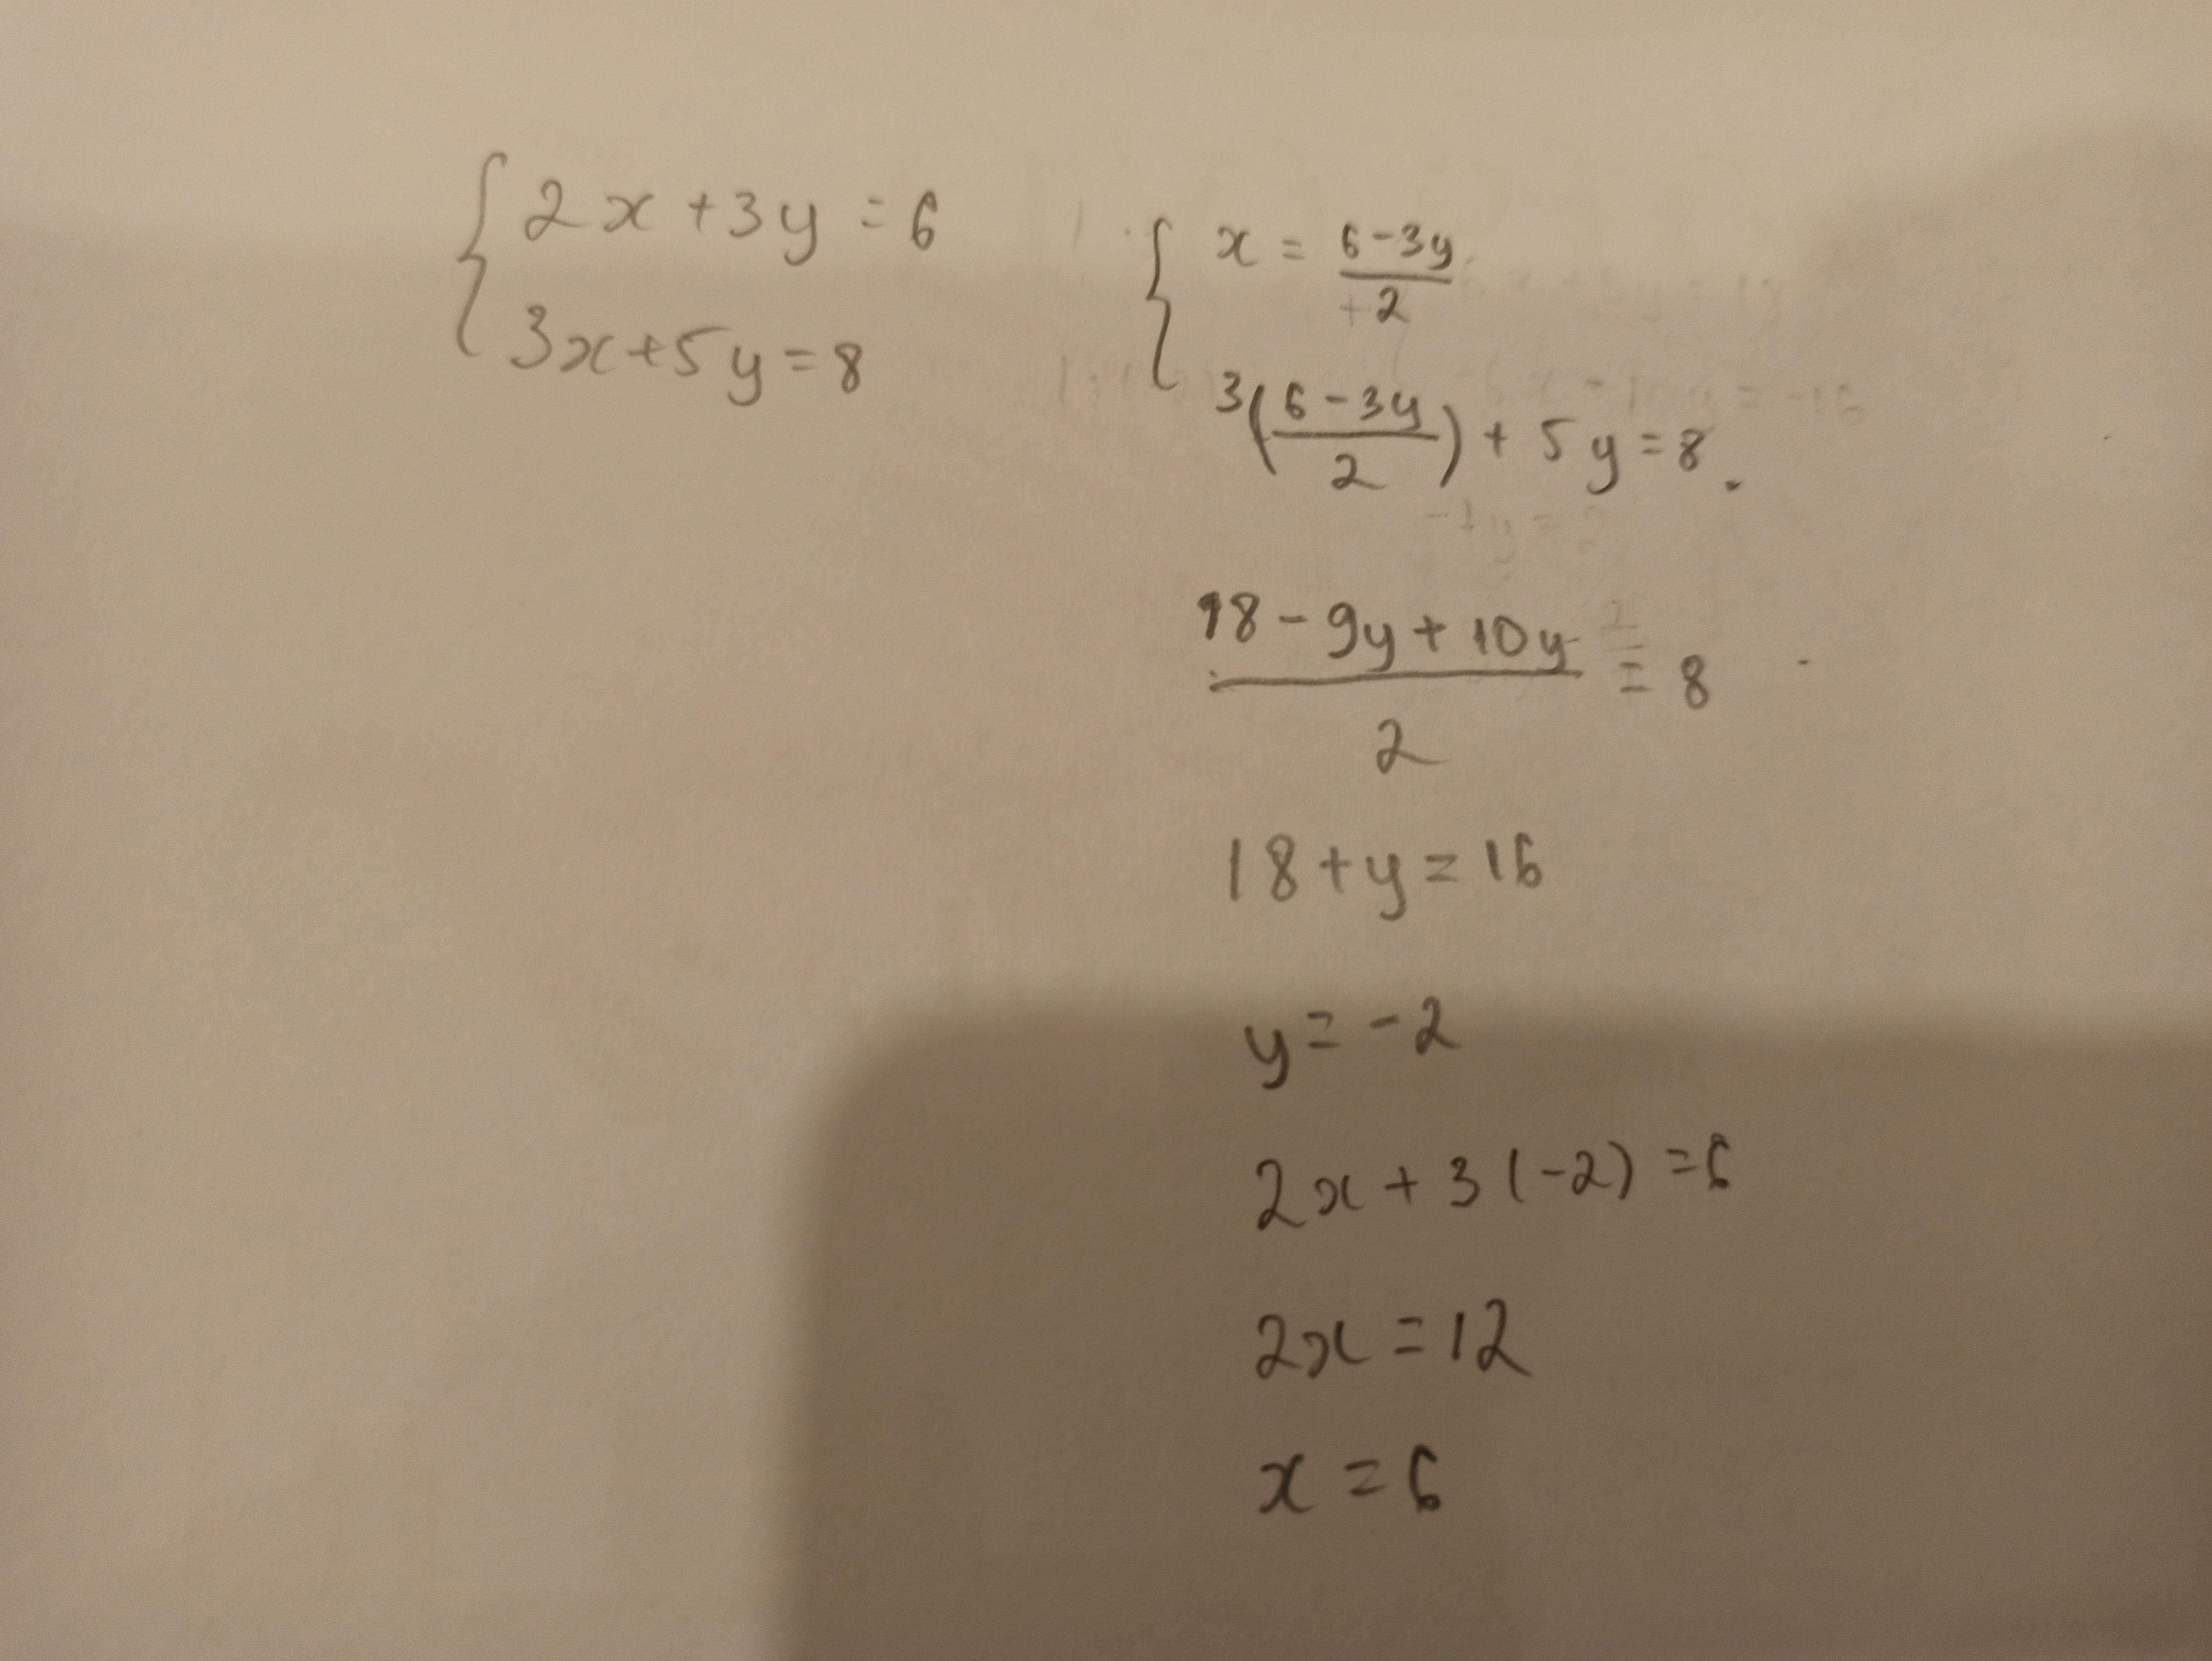 2x+3y=6
3x+5y=8
x = (6-3y)/2
3((6-3y)/2) + 5y=8.
(18-9y+10y)/2 = 8
18+y=16
y=-2
2x+3(-2)=6
2x=12
x=6